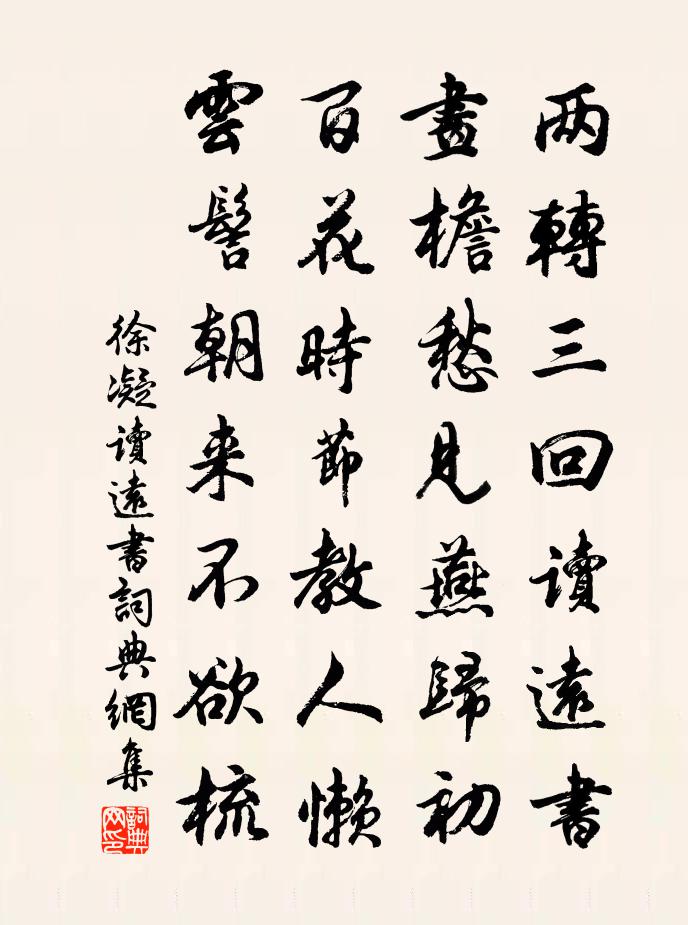 两轉三回讀遠書
畫檐愁見燕歸初
百花時節教人懶
雲髻朝来不欲梳
徐凝讀遠書詞典網集
詞典网印